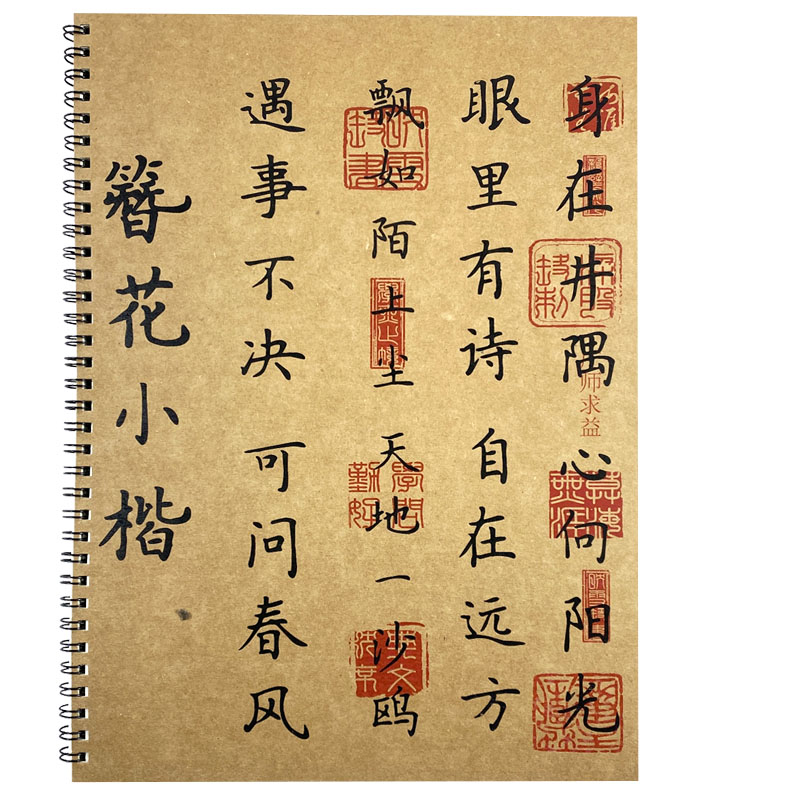 身在井隅 心向阳光
眼里有诗 自在远方
飘如陌上尘 天地一沙鸥
遇事不决 可问春风
簪花小楷
师求益